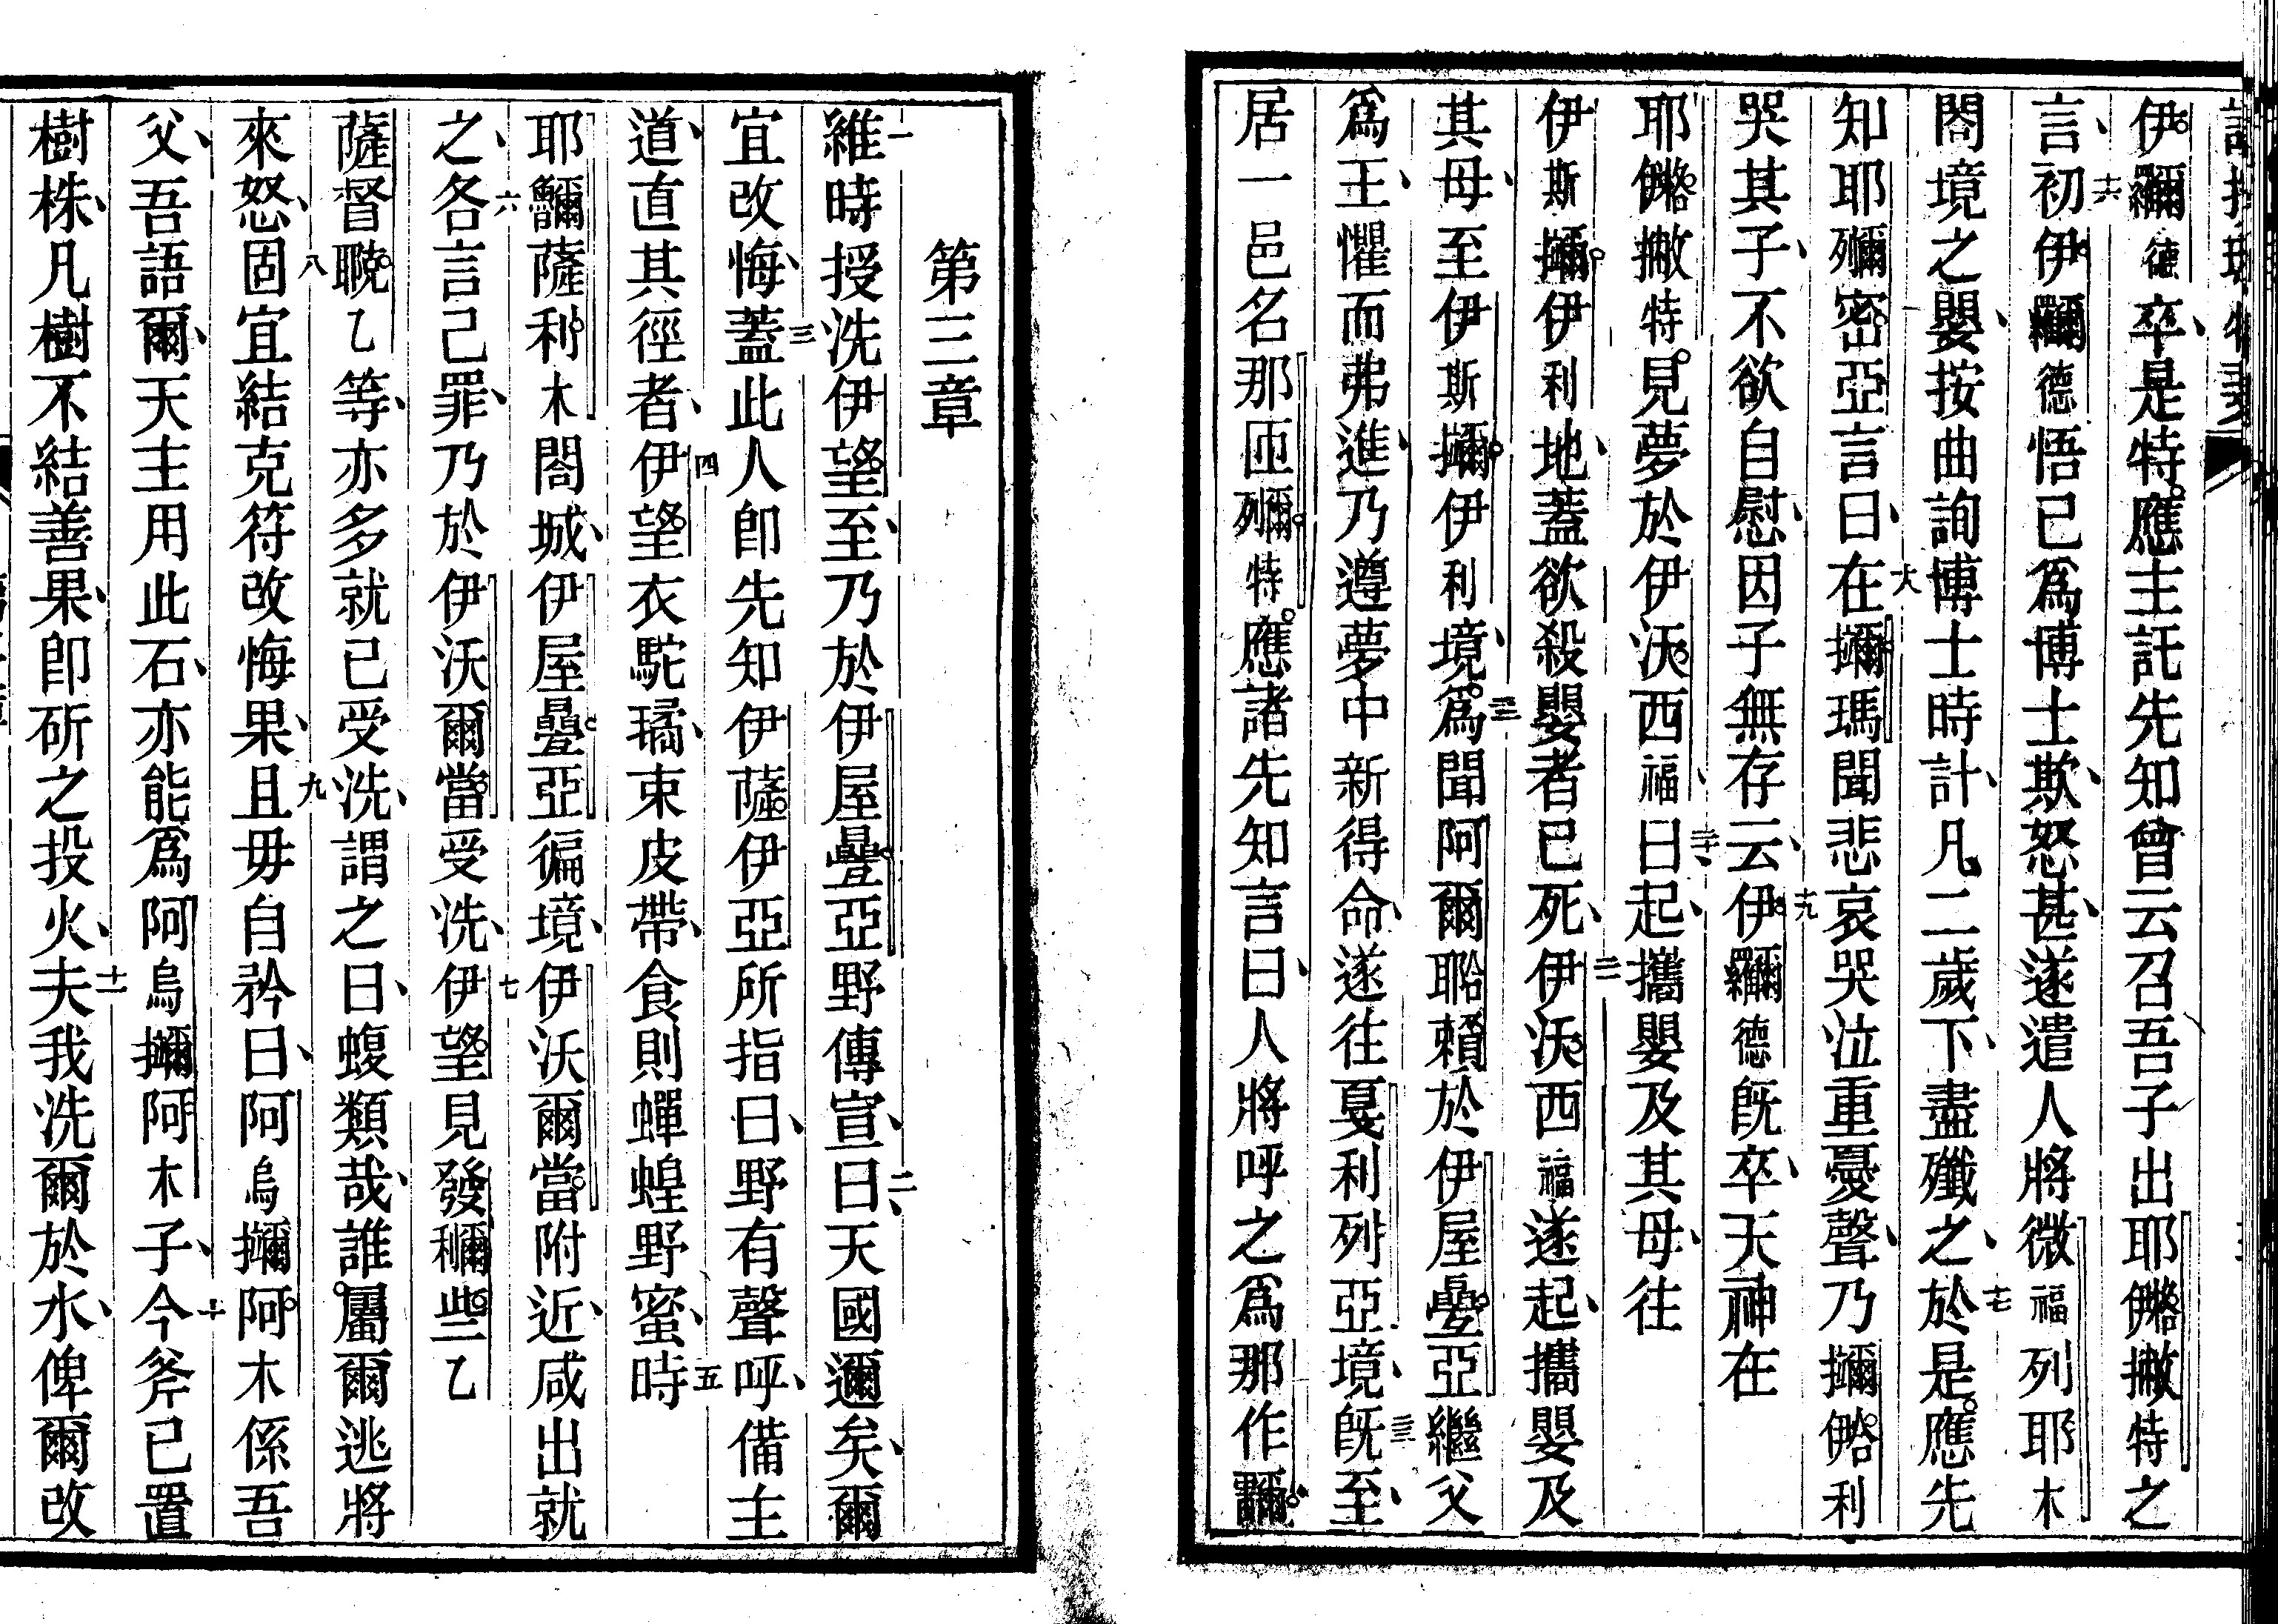 伊⿰羅爾德卒、是特應主託先知曾云召吾子出耶⿰伊格撇特之
言、十六初伊⿰羅爾德悟已為博士欺、怒甚、遂遣人將微福列耶木
閤境之嬰、按曲詢博士時計、凡二歲下、盡殲之、十七於是應先
知耶⿰列爾密亞言曰、十八在擟瑪聞悲哀哭泣重憂聲、乃擟⿰伊哈利
哭其子、不欲自慰、因子無存云、十九伊⿰羅爾德旣卒、天神在
耶⿰伊格撇特見夢於伊沃西福、曰二十、起、攜嬰及其母、往
伊斯擟伊利地、蓋欲殺嬰者已死、二一伊沃西福遂起、攜嬰及
其母、至伊斯擟伊利境、二二為聞阿爾⿰耶合賴於伊屋疊亞繼父
為王、懼而弗進、乃遵夢中新得命、遂往戛利列亞境、二三旣至、
居一邑名那匝⿰列爾特應諸先知言曰、人將呼之為那作⿰爾爾
第三章
一維時授洗伊望至、乃於伊屋疊亞野傳宣、曰二、天國邇矣、爾
宜改悔、三蓋此人卽先知伊薩伊亞所指曰、野有聲呼、備主
道、直其徑者、四伊望衣駝㺐、束皮帶、食則蟬蝗野蜜、五時
耶⿰魯爾薩利木閤城、伊屋疊亞徧境、伊沃爾當附近、咸出就
之、六各言己罪、乃於伊沃爾當受洗、七伊望見發⿰利爾些乙
薩督⿰耶克乙等、亦多就已受洗、謂之曰、蝮類哉、誰屬爾逃將
來怒、八固宜結克符改悔果、九且毋自矜曰、阿烏擟阿木係吾
父、吾語爾、天主用此石、亦能為阿烏擟阿木子、十今斧已置
樹株、凡樹不結善果、卽斫之投火、十一夫我洗爾於水、俾爾改